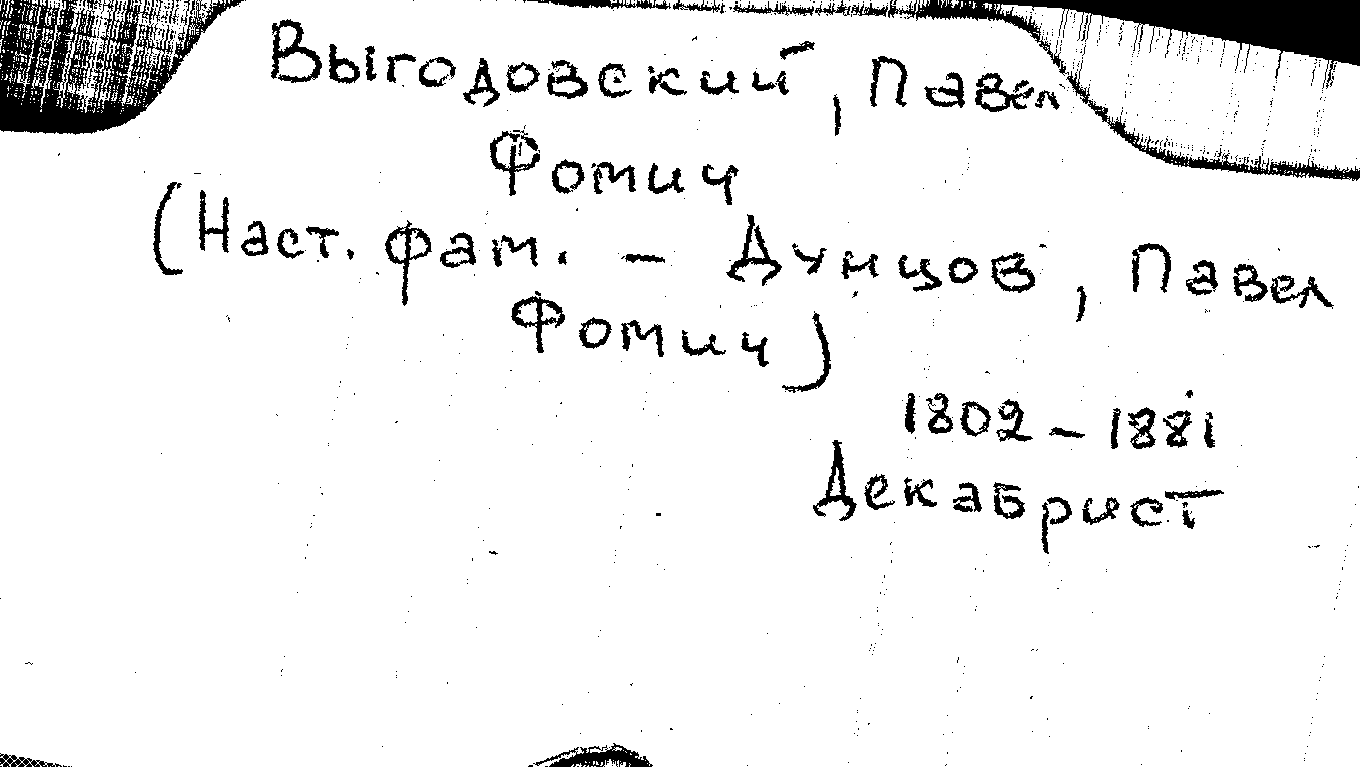 Выгодовский, Павел
Фомич
(Наст. фам. – Дунцов, Павел
Фомич)
1802 – 1881
Декабрист